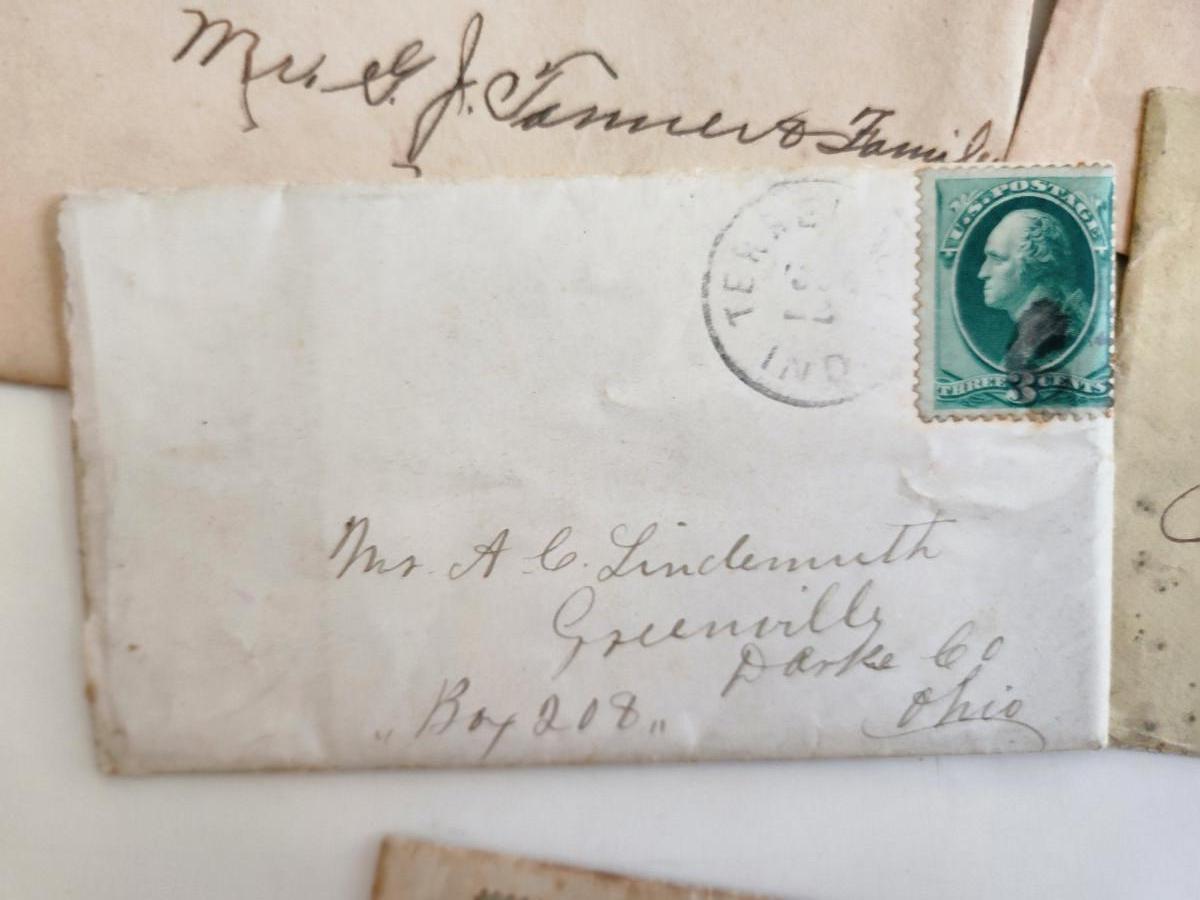 Mr. G. J. Tanner & Family
U.S. POSTAGE
THREE 3 CENTS
TERRE
IND
Mr. A. C. Lindemuth
Greenville
Darke Co
Ohio
„ Box 208 „